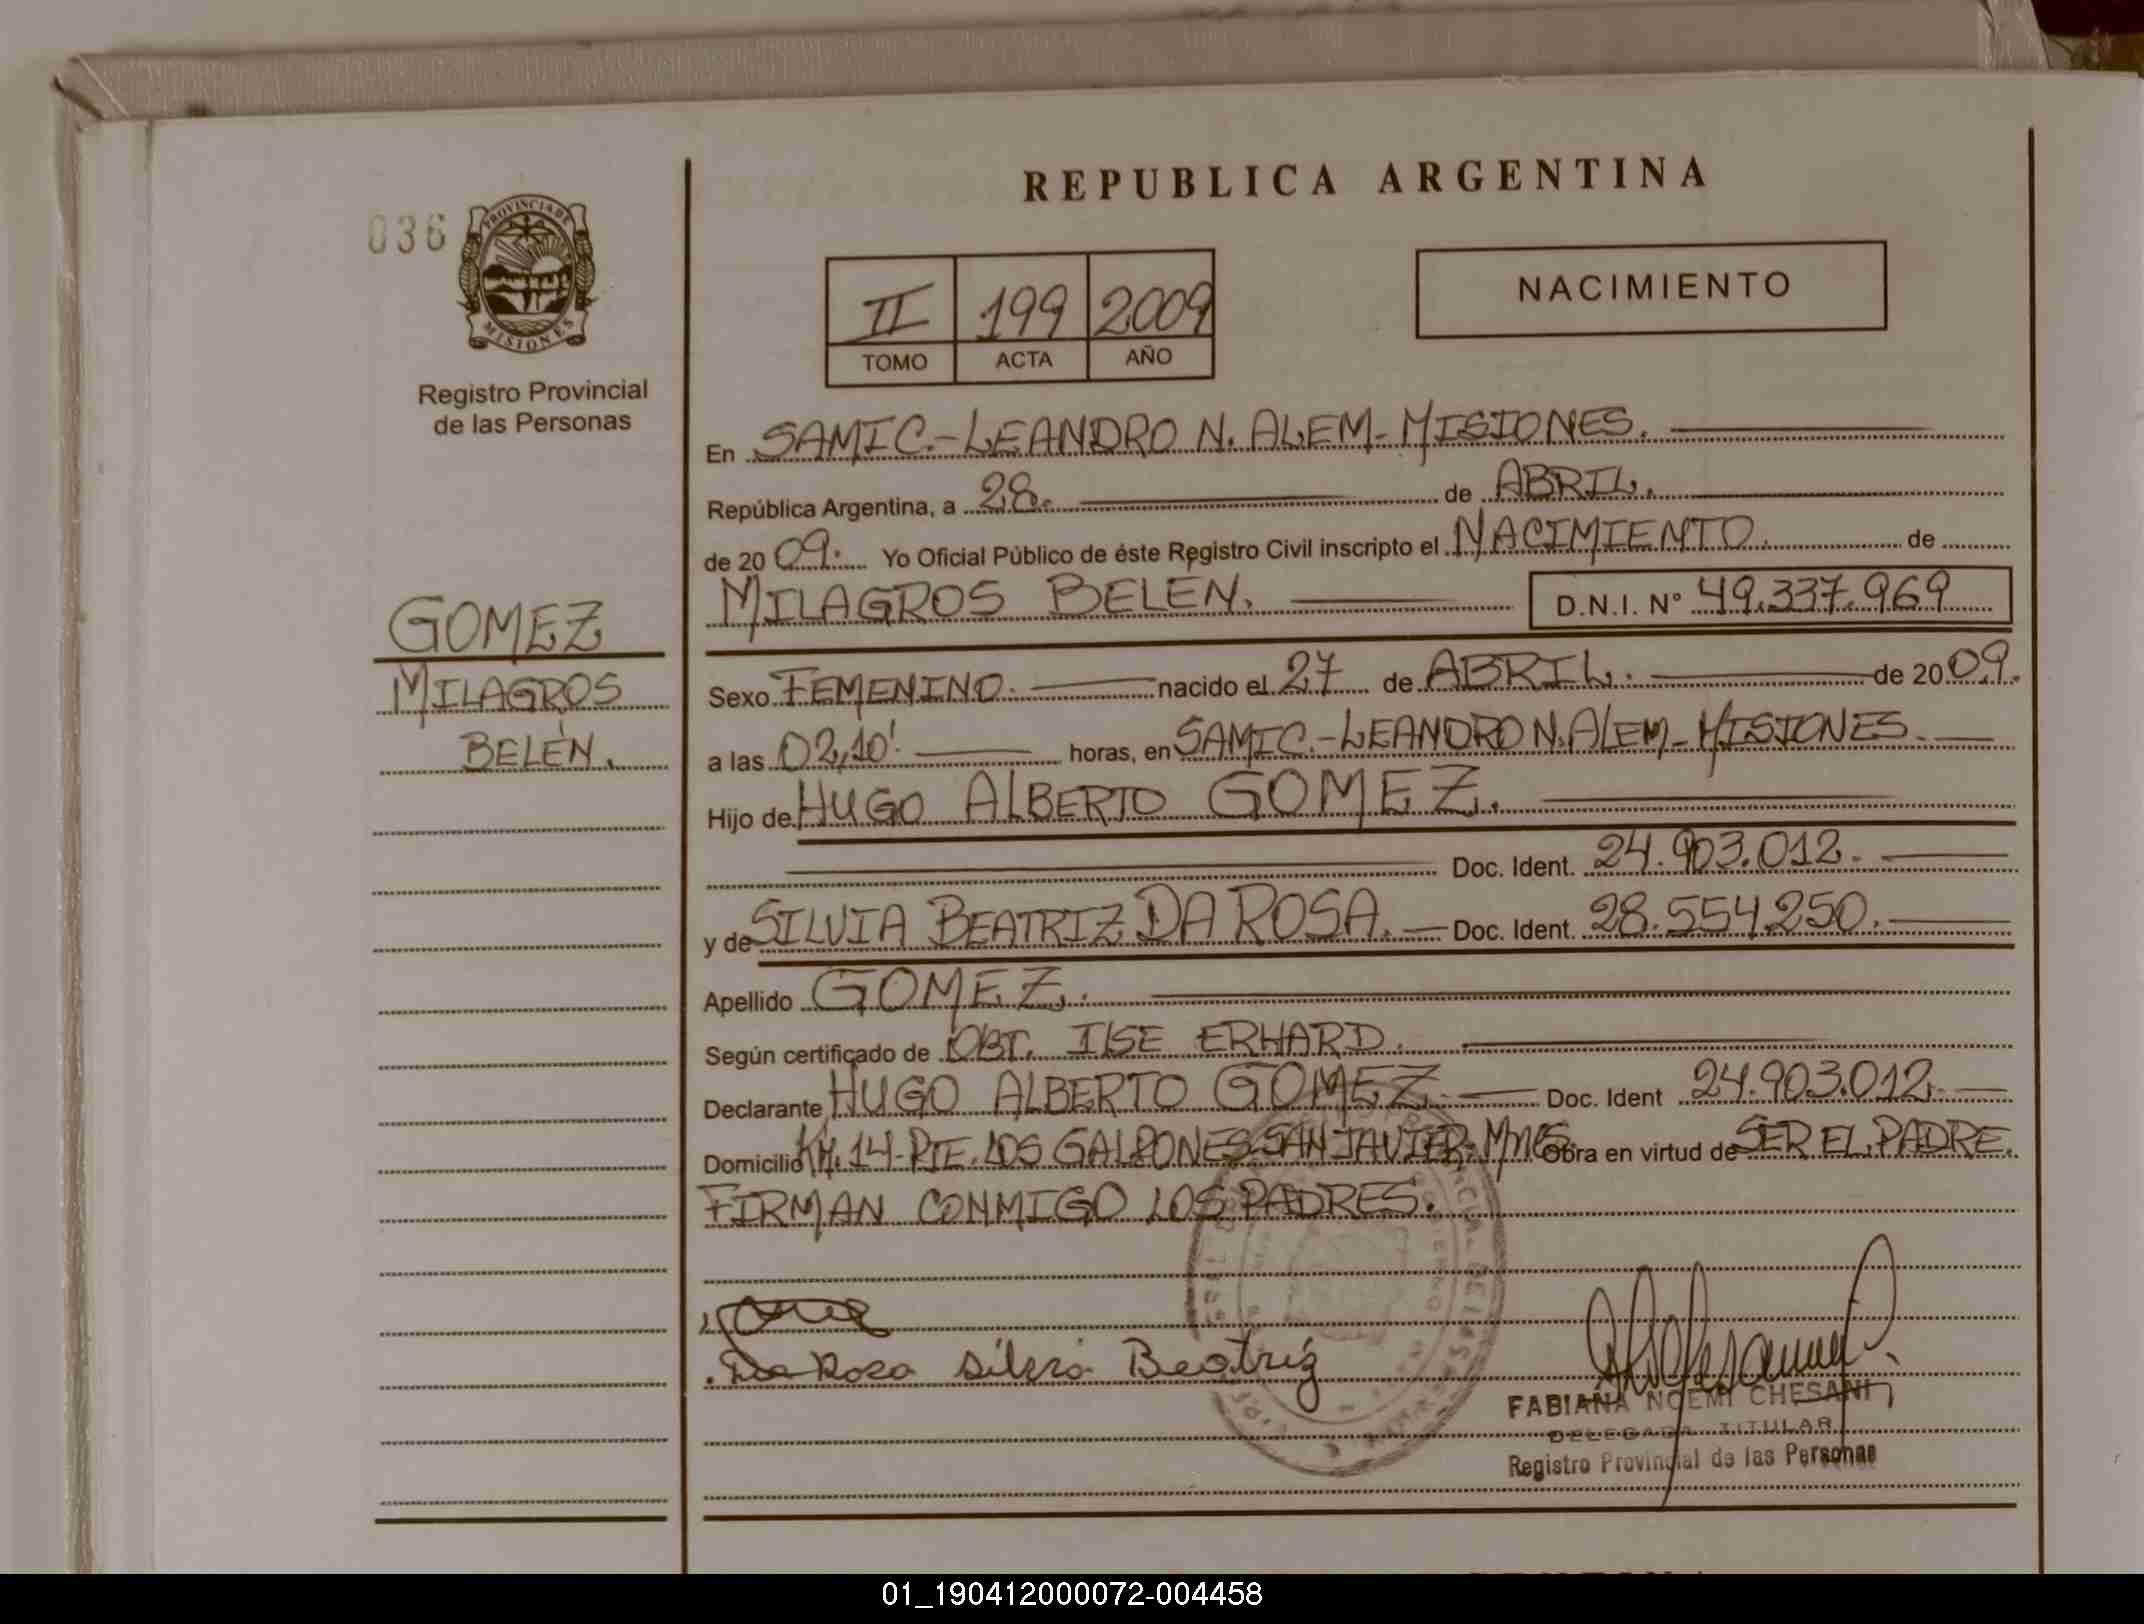 REPUBLICA ARGENTINA
036
PROVINCIA DE
MISIONES
Registro Provincial
de las Personas
II 199 2009
TOMO ACTA AÑO
NACIMIENTO
GOMEZ
MILAGROS
BELÉN.
En SAMIC.-LEANDRO N. ALEM-MISIONES.
República Argentina, a 28. de ABRIL.
de 20 09. Yo Oficial Público de éste Registro Civil inscripto el NACIMIENTO. de
MILAGROS BELÉN. D.N.I. N° 49.337.969
Sexo FEMENINO. nacido el 27 de ABRIL. de 20 09.
a las 02,10'. horas, en SAMIC.-LEANDRO N. ALEM-MISIONES.
Hijo de HUGO ALBERTO GOMEZ.
Doc. Ident. 24.903.012.
y de SILVIA BEATRIZ DA ROSA. Doc. Ident. 28.554.250.
Apellido GOMEZ.
Según certificado de OBT. ILSE ERHARD.
Declarante HUGO ALBERTO GOMEZ. Doc. Ident 24.903.012.
Domicilio KM. 14-PTE. LOS GALPONES-SAN JAVIER-Mnes Obra en virtud de SER EL PADRE.
FIRMAN CONMIGO LOS PADRES.
Da Rosa Silvia Beatriz
FABIANA NOEMI CHESANI
DELEGADA TITULAR
Registro Provincial de las Personas
01_190412000072-004458